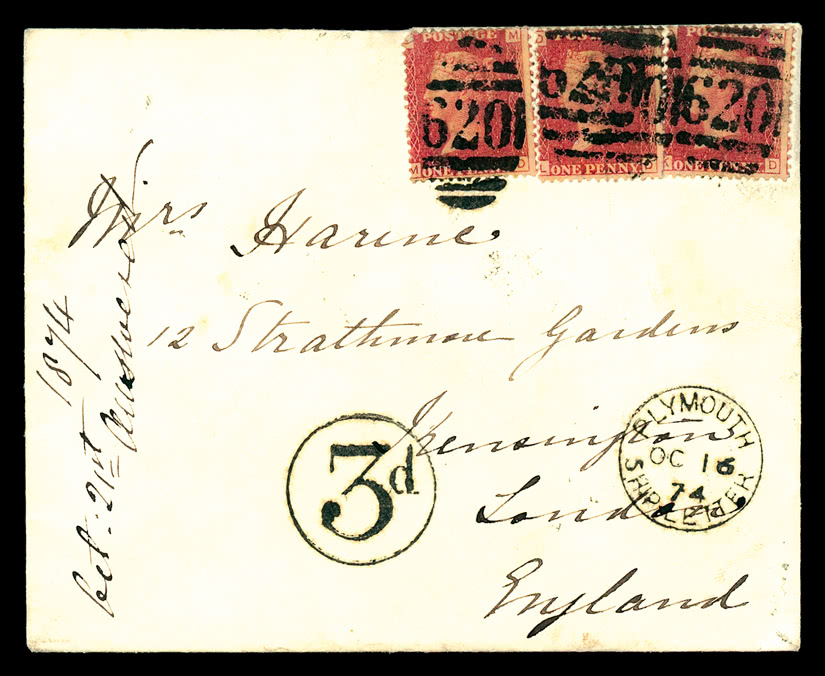 POSTAGE M
M ONE PENNY D
L ONE PENNY D
K ONE PENNY D
620
620
620
Mrs Harene
12 Strathmore Gardens
Kensington
London
England
3d
PLYMOUTH
OC 16
74
SHIP LETTER
Oct: 21st Answered
1874